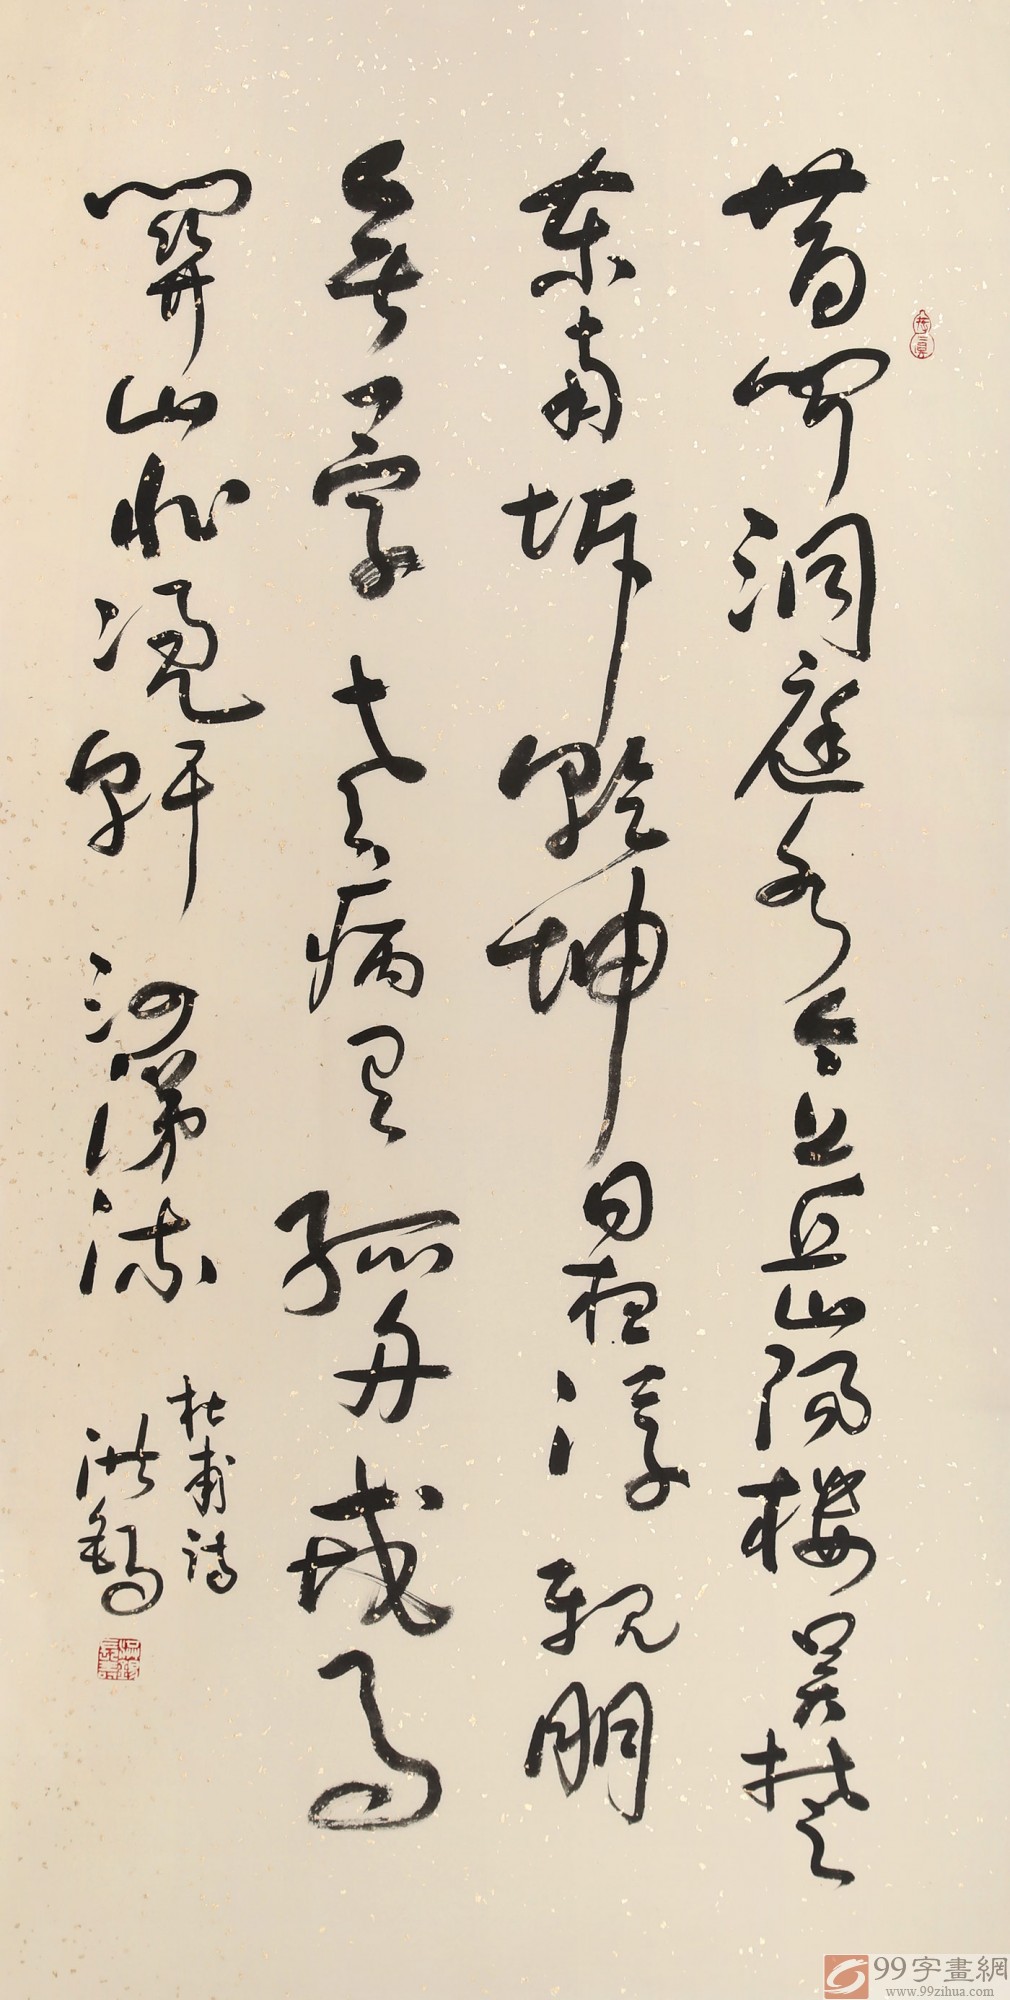 昔聞洞庭水今上岳陽樓吳楚
東南坼乾坤日浮親朋
無一字老病有孤舟戎馬
關山北憑軒泗涕流
杜甫詩
洪
99字畫網
www.99zihua.com